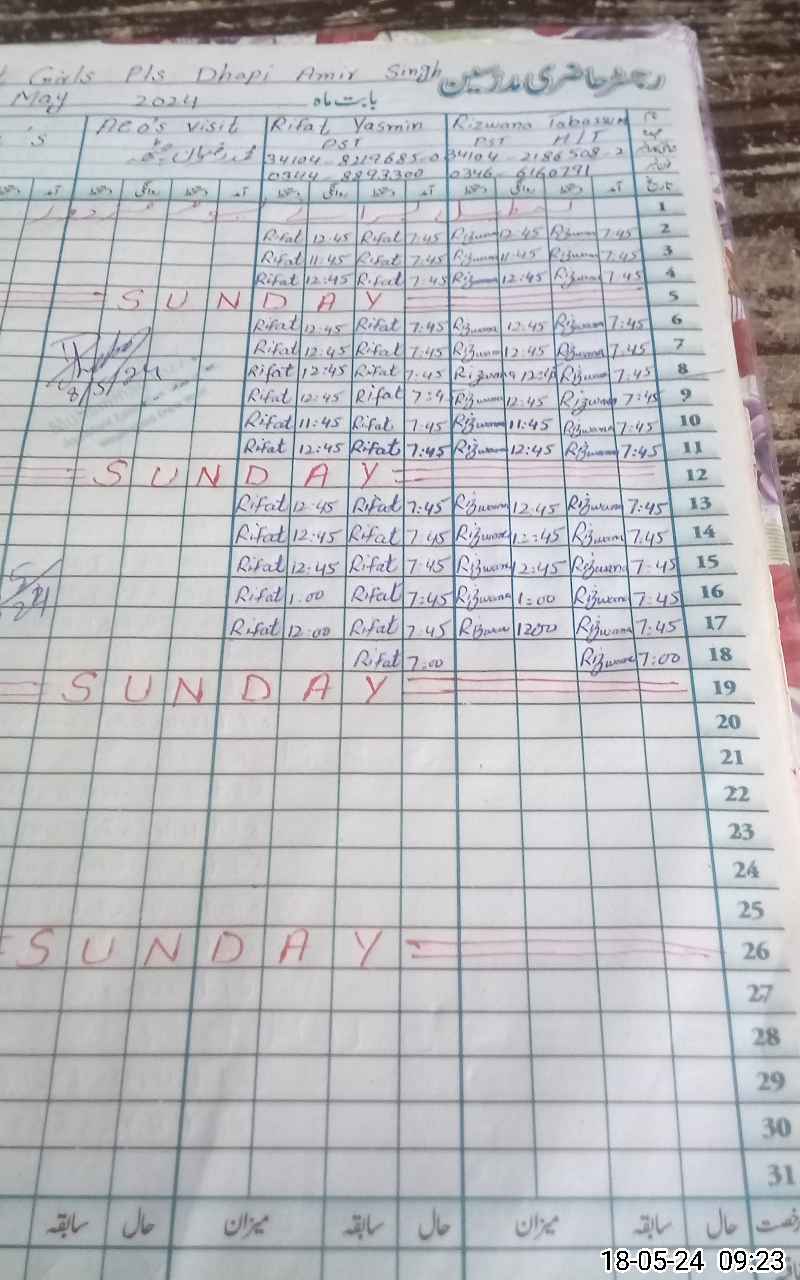 Girls Pls Dhapi Amir Singh رجسٹر حاضری مدرسین
May 2024 بابت ماہ
's AEO's visit Rifat Yasmin Rizwana Tabasum
PST PST H/T
34104-8219685-0 34104-2186508-2
0344-8893300 0346-6160791
1
Rifat 12:45 Rifat 7:45 Rizwana 12:45 Rizwana 7:45 2
Rifat 11:45 Rifat 7:45 Rizwana 11:45 Rizwana 7:45 3
Rifat 12:45 Rifat 7:45 Rizwana 12:45 Rizwana 7:45 4
SUNDAY 5
Rifat 12:45 Rifat 7:45 Rizwana 12:45 Rizwana 7:45 6
Rifat 12:45 Rifat 7:45 Rizwana 12:45 Rizwana 7:45 7
8/5/24 Rifat 12:45 Rifat 7:45 Rizwana Rizwana 7:45 8
Rifat 12:45 Rifat 7:4 Rizwana 12:45 Rizwana 7:45 9
Rifat 11:45 Rifat 7:45 Rizwana 11:45 Rizwana 7:45 10
Rifat 12:45 Rifat 7:45 Rizwana 12:45 Rizwana 7:45 11
SUNDAY 12
Rifat 12:45 Rifat 7:45 Rizwana 12:45 Rizwana 7:45 13
Rifat 12:45 Rifat 7:45 Rizwana Rizwana 7:45 14
Rifat 12:45 Rifat 7:45 Rizwana 12:45 Rizwana 7:45 15
Rifat 1.00 Rifat 7:45 Rizwana 1:00 Rizwana 7:45 16
Rifat 12:00 Rifat 7:45 Rizwana 1200 Rizwana 7:45 17
Rifat 7:00 Rizwana 7:00 18
SUNDAY 19
20
21
22
23
24
25
SUNDAY 26
27
28
29
30
31
رخصت حال سابقہ میزان حال سابقہ میزان حال سابقہ
18-05-24 09:23